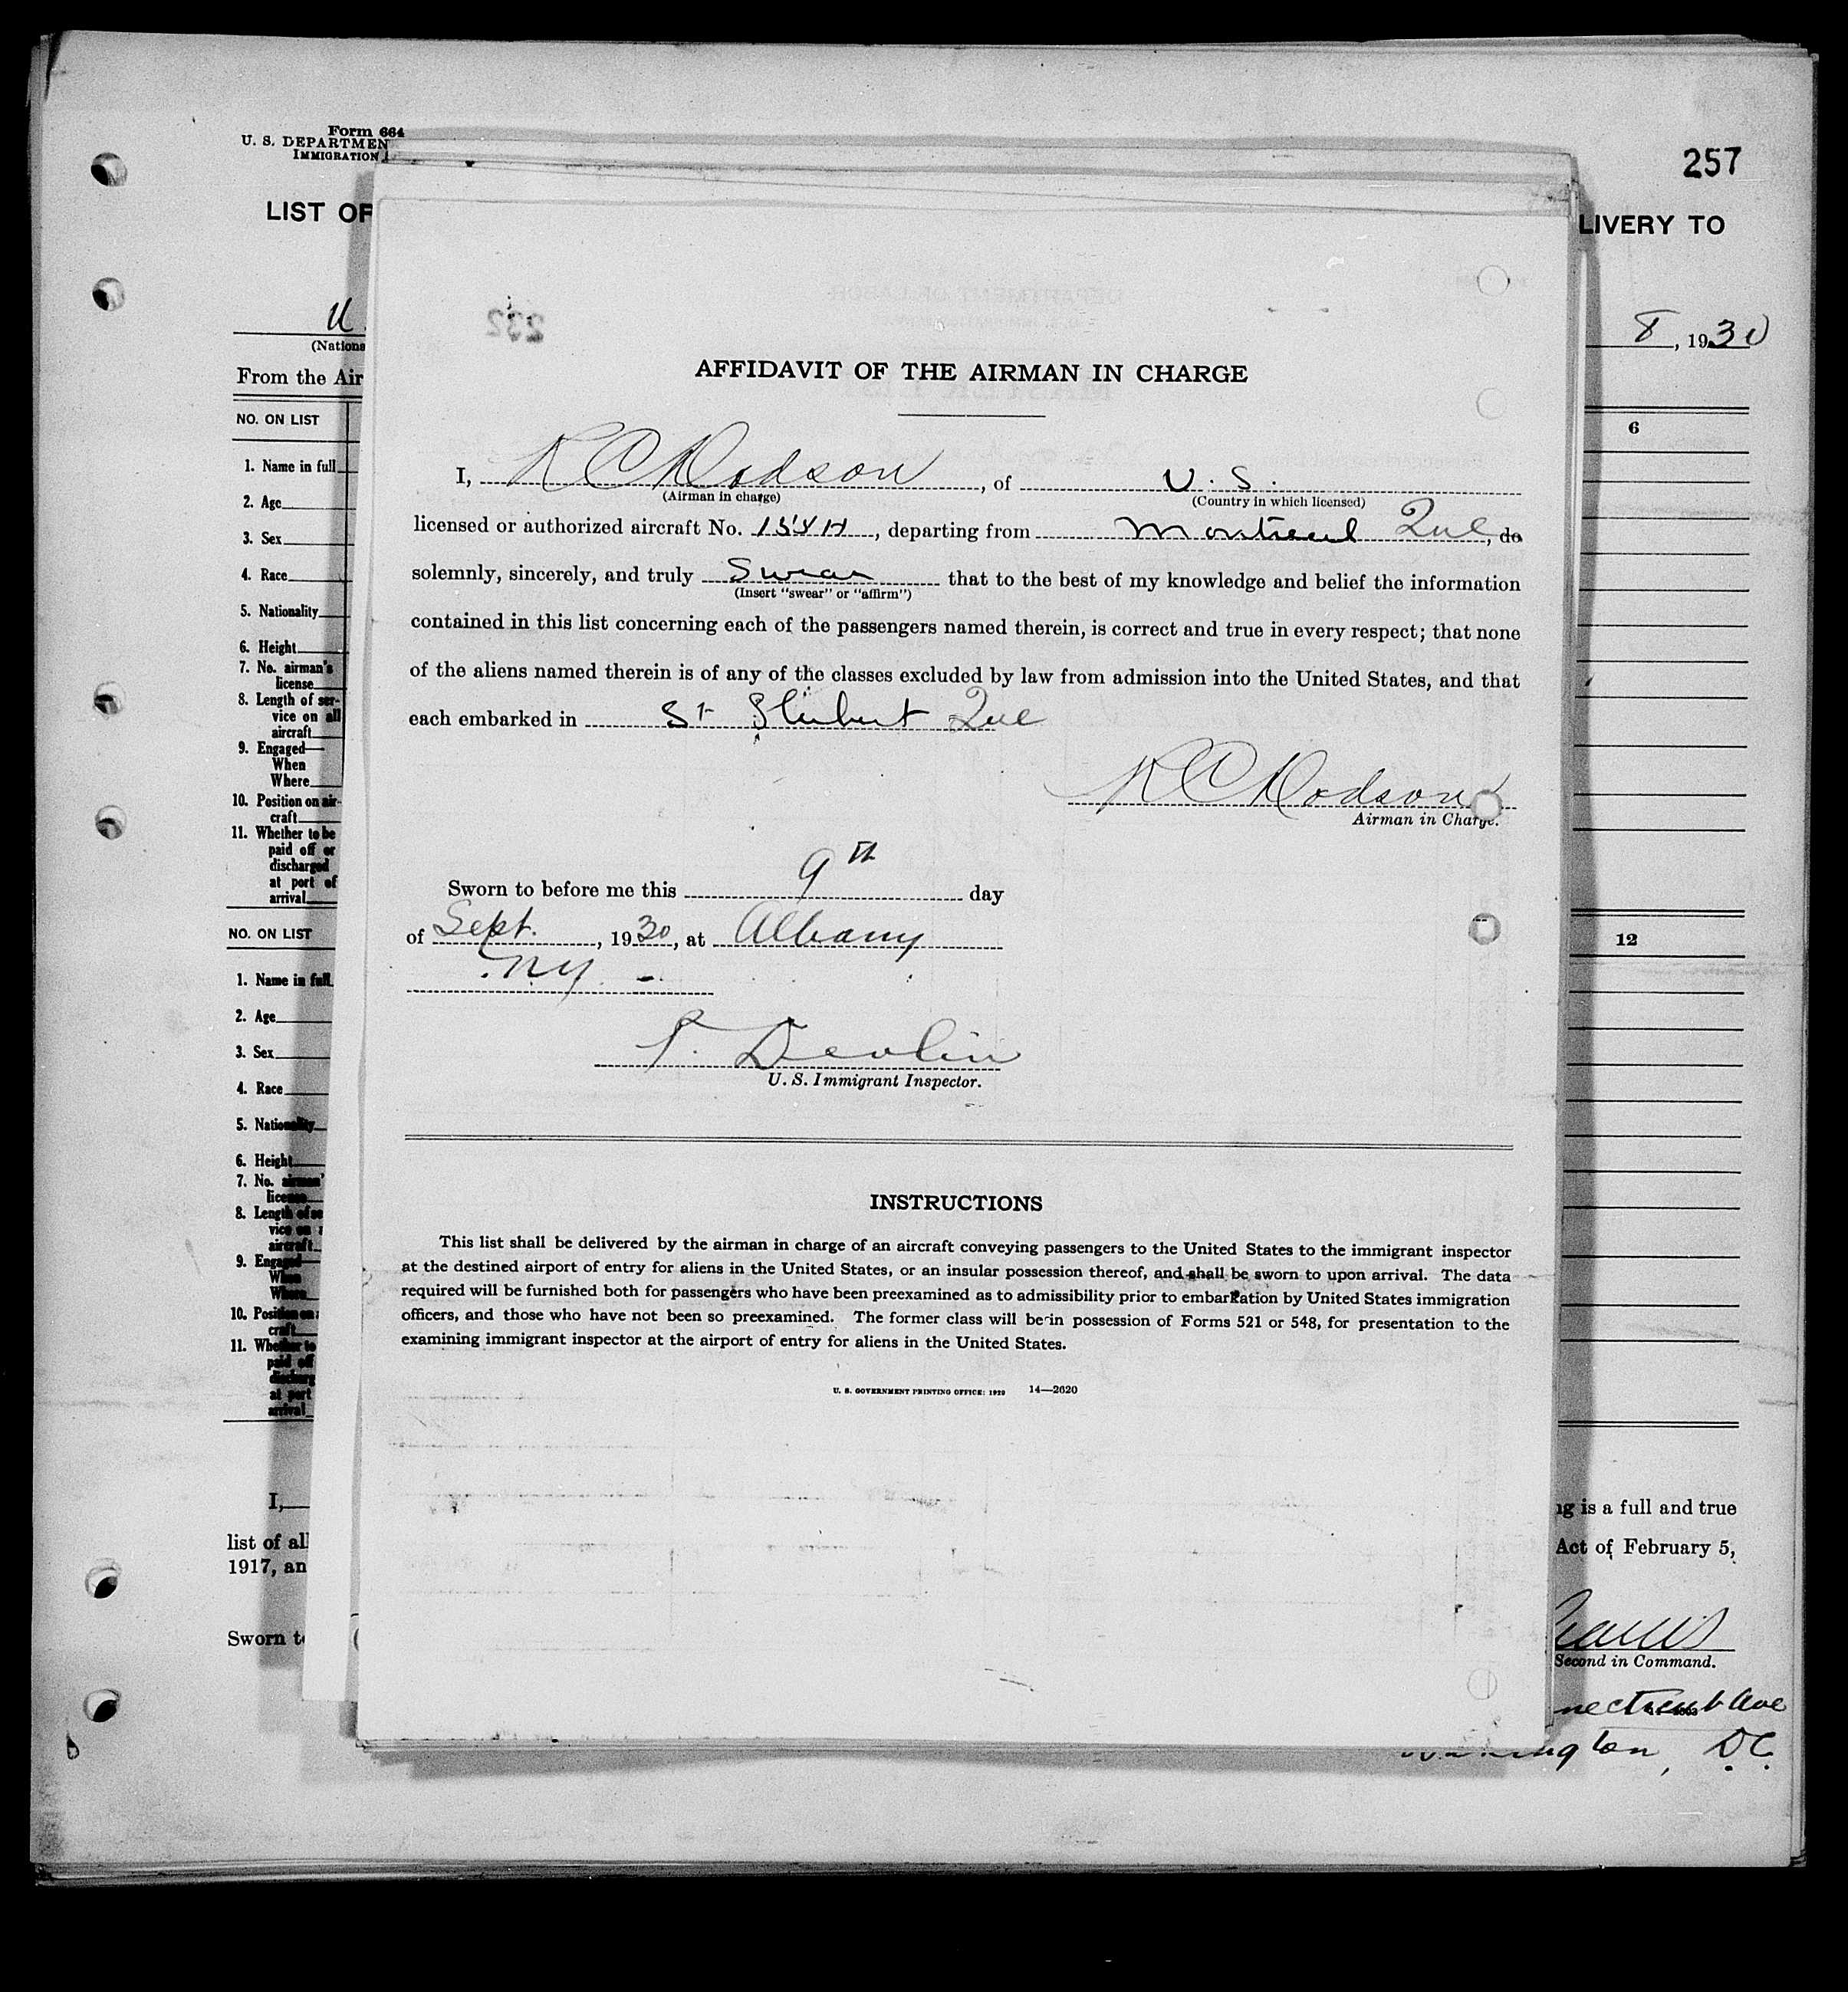 Form 664
U. S. DEPARTMEN
IMMIGRATION
257
LIST OF
LIVERY TO
U.
(Nationa
8, 1930
From the Air
NO. ON LIST
6
1. Name in full
2. Age
3. Sex
4. Race
5. Nationality
6. Height
7. No. airman's
license
8. Length of ser-
vice on all
aircraft
9. Engaged—
When
Where
10. Position on air-
craft
11. Whether to be
paid off or
discharged
at port of
arrival
NO. ON LIST
12
1. Name in full
2. Age
3. Sex
4. Race
5. Nationality
6. Height
7. No. airman'
license
8. Length of se
vice on
aircraft
9. Engaged—
When
Where
10. Position on
craft
11. Whether to
paid off
discharg
at port
arrival
I,
ng is a full and true
list of all
Act of February 5,
1917, an
Sworn to
Second in Command.
necticut Ave
ington, DC.
232
AFFIDAVIT OF THE AIRMAN IN CHARGE
I, R C Dodson, of U. S.
(Airman in charge) (Country in which licensed)
licensed or authorized aircraft No. , departing from Montreal Que, do
solemnly, sincerely, and truly Swear that to the best of my knowledge and belief the information
(Insert "swear" or "affirm")
contained in this list concerning each of the passengers named therein, is correct and true in every respect; that none
of the aliens named therein is of any of the classes excluded by law from admission into the United States, and that
each embarked in St Hubert Que
R C Dodson
Airman in Charge.
Sworn to before me this 9th day
of Sept., 1930, at Albany
N Y -
Devlin
U. S. Immigrant Inspector.
INSTRUCTIONS
This list shall be delivered by the airman in charge of an aircraft conveying passengers to the United States to the immigrant inspector
at the destined airport of entry for aliens in the United States, or an insular possession thereof, and shall be sworn to upon arrival. The data
required will be furnished both for passengers who have been preexamined as to admissibility prior to embarkation by United States immigration
officers, and those who have not been so preexamined. The former class will be in possession of Forms 521 or 548, for presentation to the
examining immigrant inspector at the airport of entry for aliens in the United States.
U. S. GOVERNMENT PRINTING OFFICE: 1929 14—2620